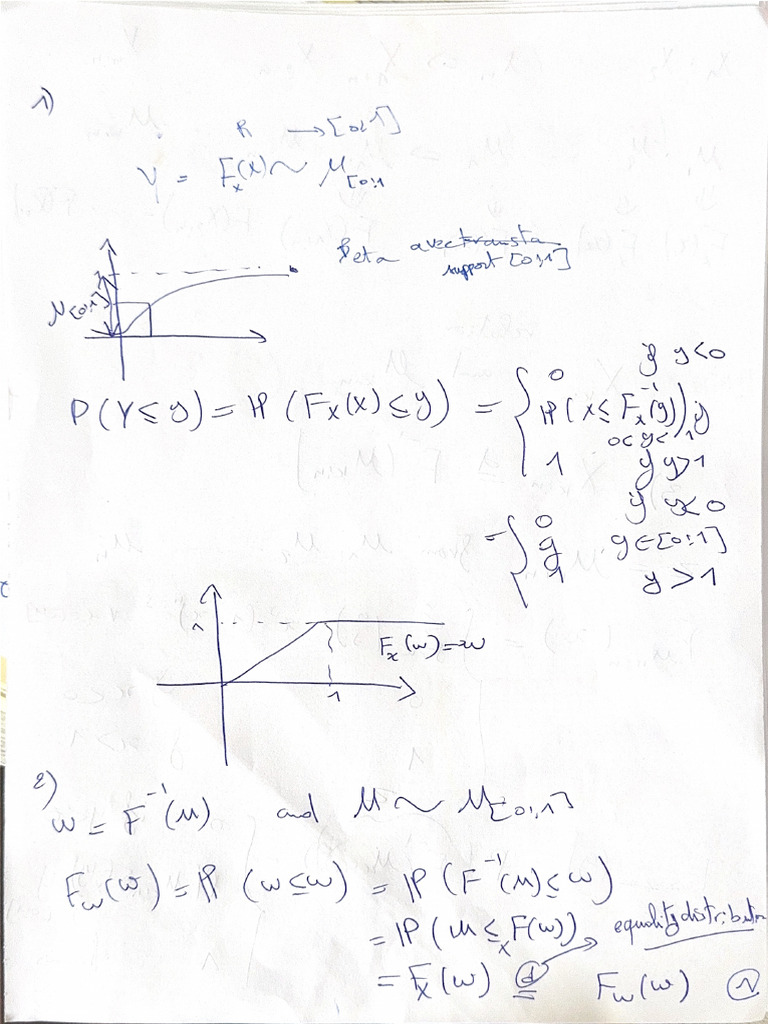 1)
R → [0;1]
Y = F_x(X) ~ U_[0;1]
Beta avec
support [0;1]
U[0;1]
P(Y ≤ y) = P(F_X(X) ≤ y) = { 0 if y<0
P(X ≤ F_x^-1(y)) if
0<y<1
1 if y>1
= { 0 if y<0
y y∈[0;1]
1 y>1
1
F_x(w)=w
1
2)
W = F^-1(U) and U ~ U_[0;1]
F_w(w) = P(W≤w) = P(F^-1(U) ≤ w)
= P(U ≤ F_x(w)) equality distribution
= F_x(w) (d) = F_w(w)